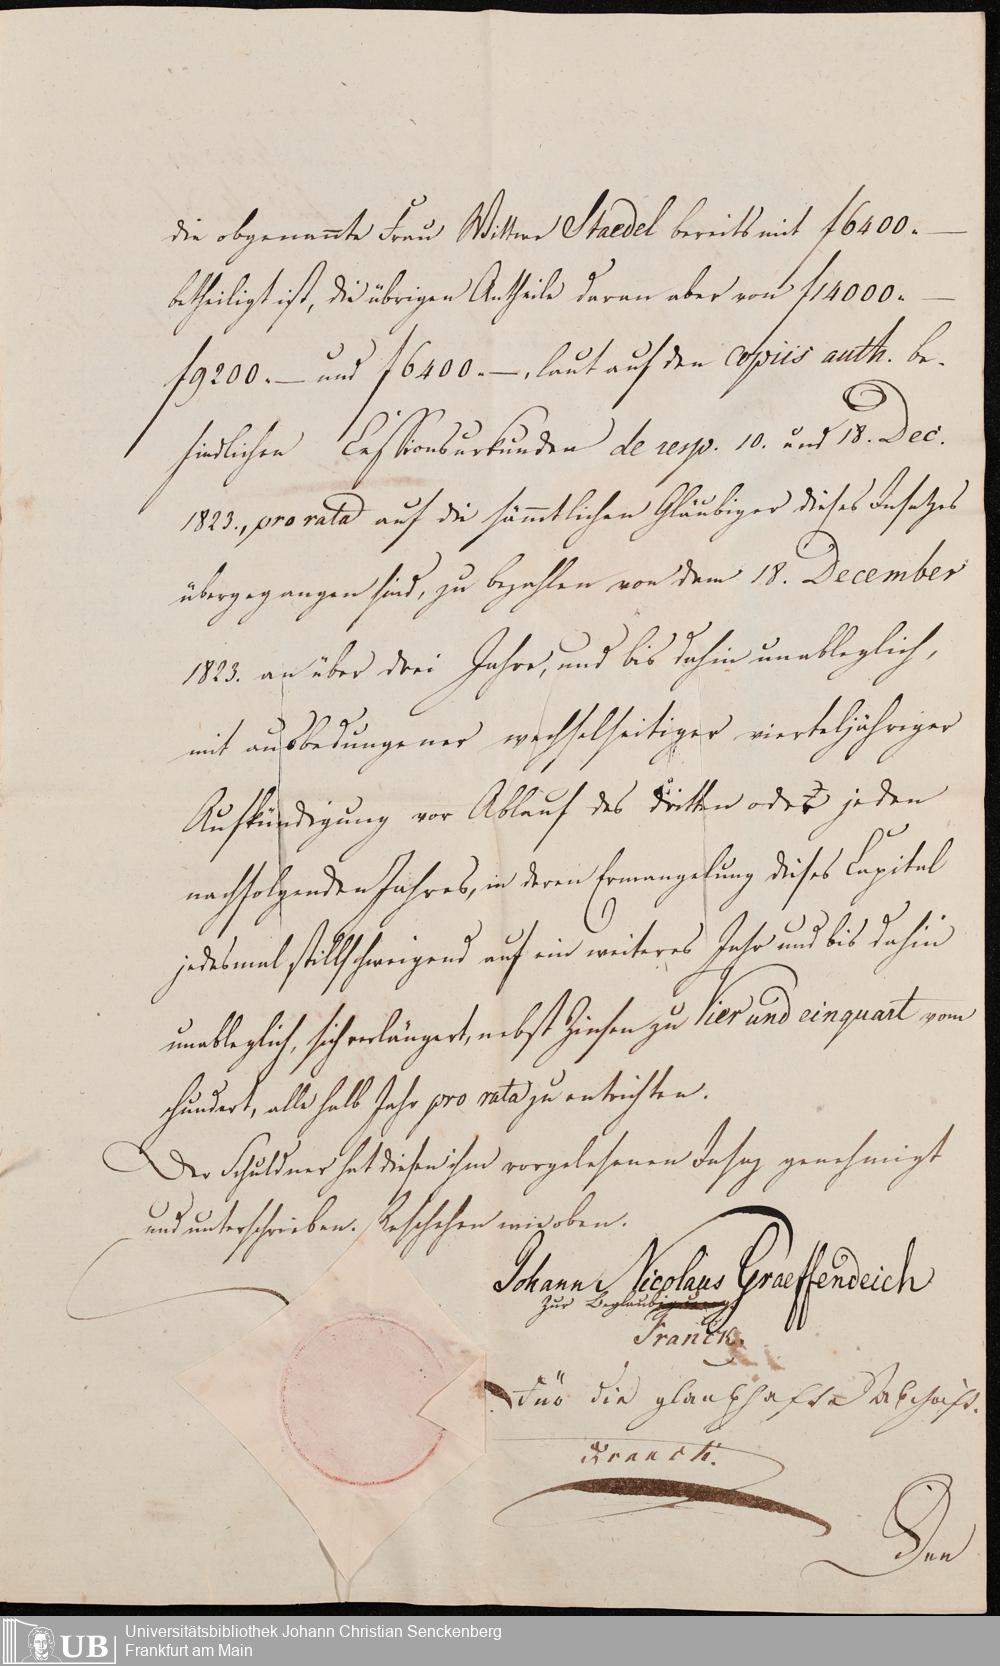 die obgenannte Frau Wittwe Staedel bereits mit f6400.—
betheiligt ist, die übrigen Antheile daran aber von f14000.—
f9200.— und f6400.—, laut auf den copiis auth. be-
findlichen Cessionsurkunden de resp. 10. und 18. Dec.
1823., pro rata auf die sämmtlichen Gläubiger dieses Insatzes
übergegangen sind, zu bezahlen von dem 18. December
1823. an über drei Jahre, und bis dahin unableglich,
mit ausbedungener wechselseitiger vierteljähriger
Aufkündigung vor Ablauf des dritten oder jeden
nachfolgenden Jahres, in deren Ermangelung dieses Capital
jedesmal stillschweigend auf ein weiteres Jahr und bis dahin
unableglich, sich verlängert, nebst Zinsen zu Vier und einquart vom
hundert, alle halb Jahr pro rata zu entrichten.
Der Schuldner hat diesen ihm vorgelesenen Insaz genehmigt
und unterschrieben. Geschehen wie oben.
Johann Nicolaus Graeffendeich
Zur Beglaubigung
Franck.
Für die glaubhafte Abschrift.
Franck.
Den
UB Universitätsbibliothek Johann Christian Senckenberg
Frankfurt am Main